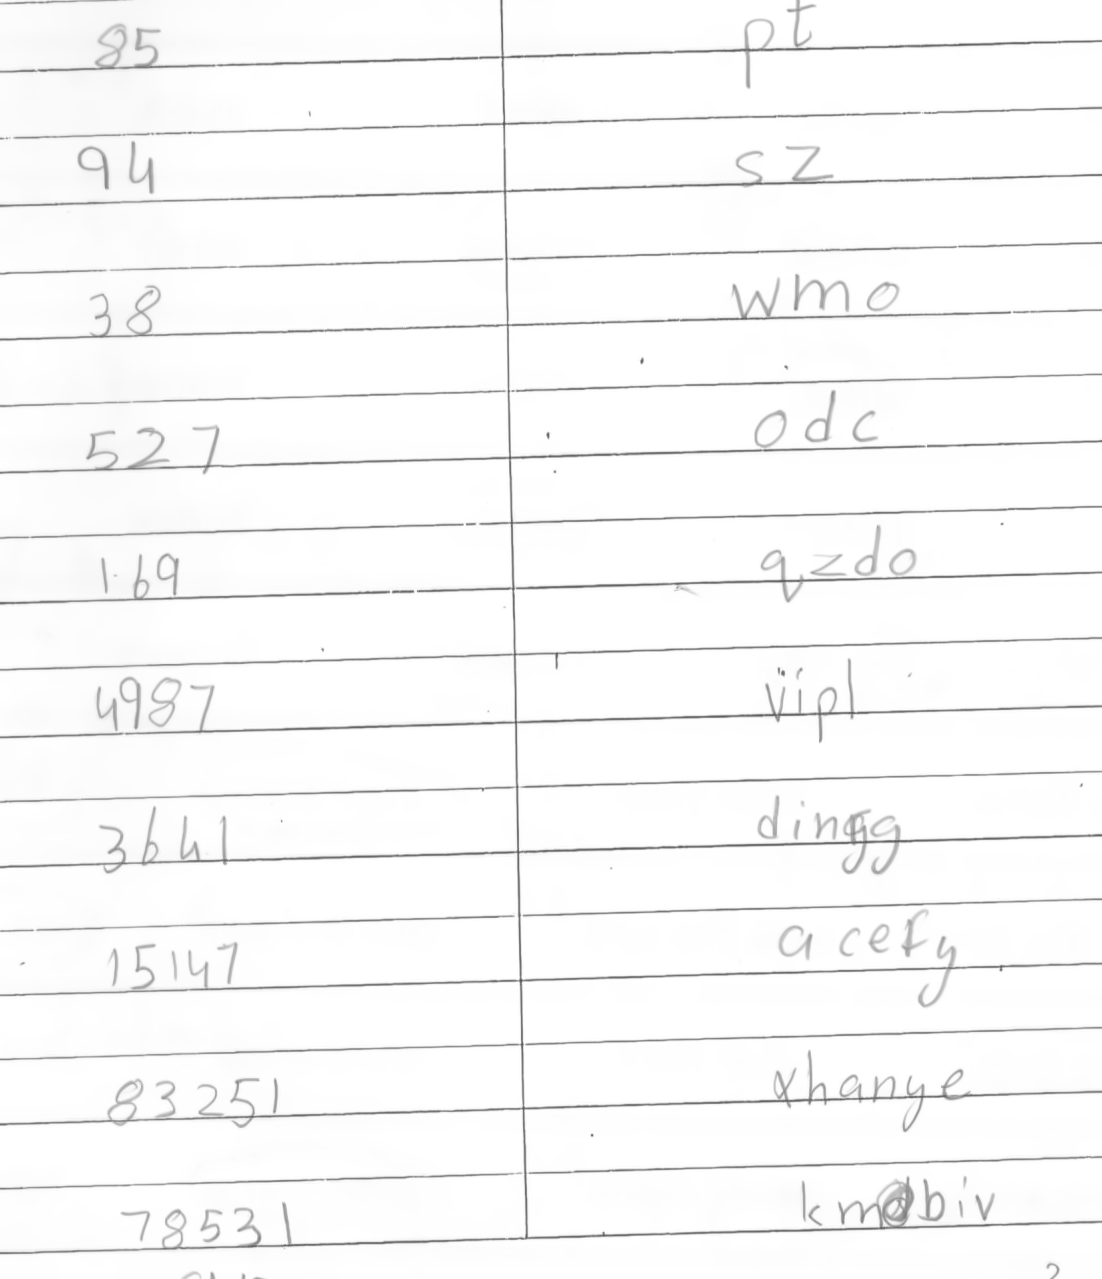 85 pt
94 sz
38 wmo
527 odc
169 qzdo
4987 vipl
3641 dingg
15147 acefy
83251 xhanye
78531 kmdbiv